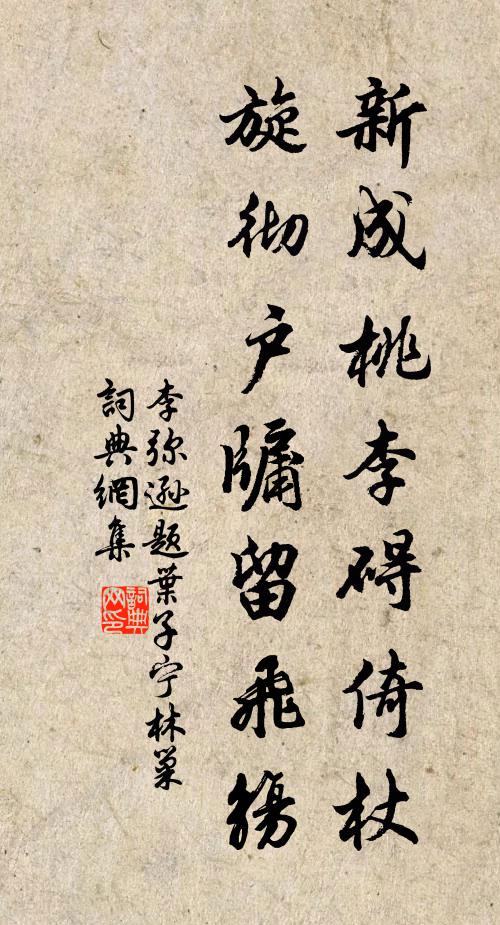 新成桃李碍倚杖
旋彻户牖留飛觴
李弥遜题葉子宁林巢
詞典網集
詞典网印